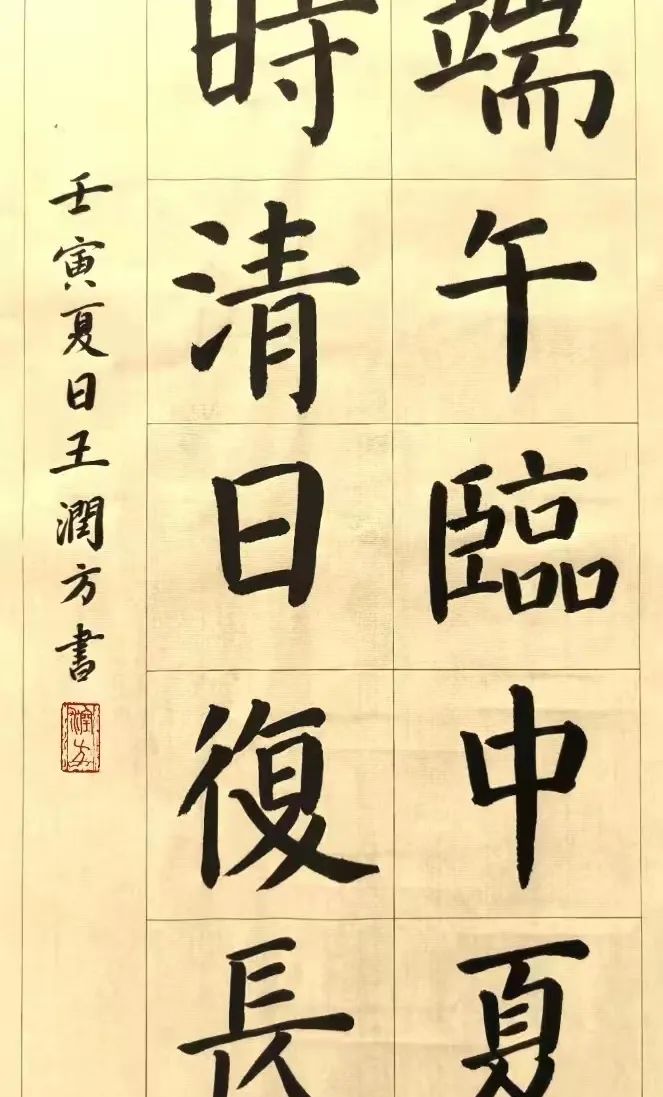 端午臨中夏
時清日復長
壬寅夏日王潤方書
潤方